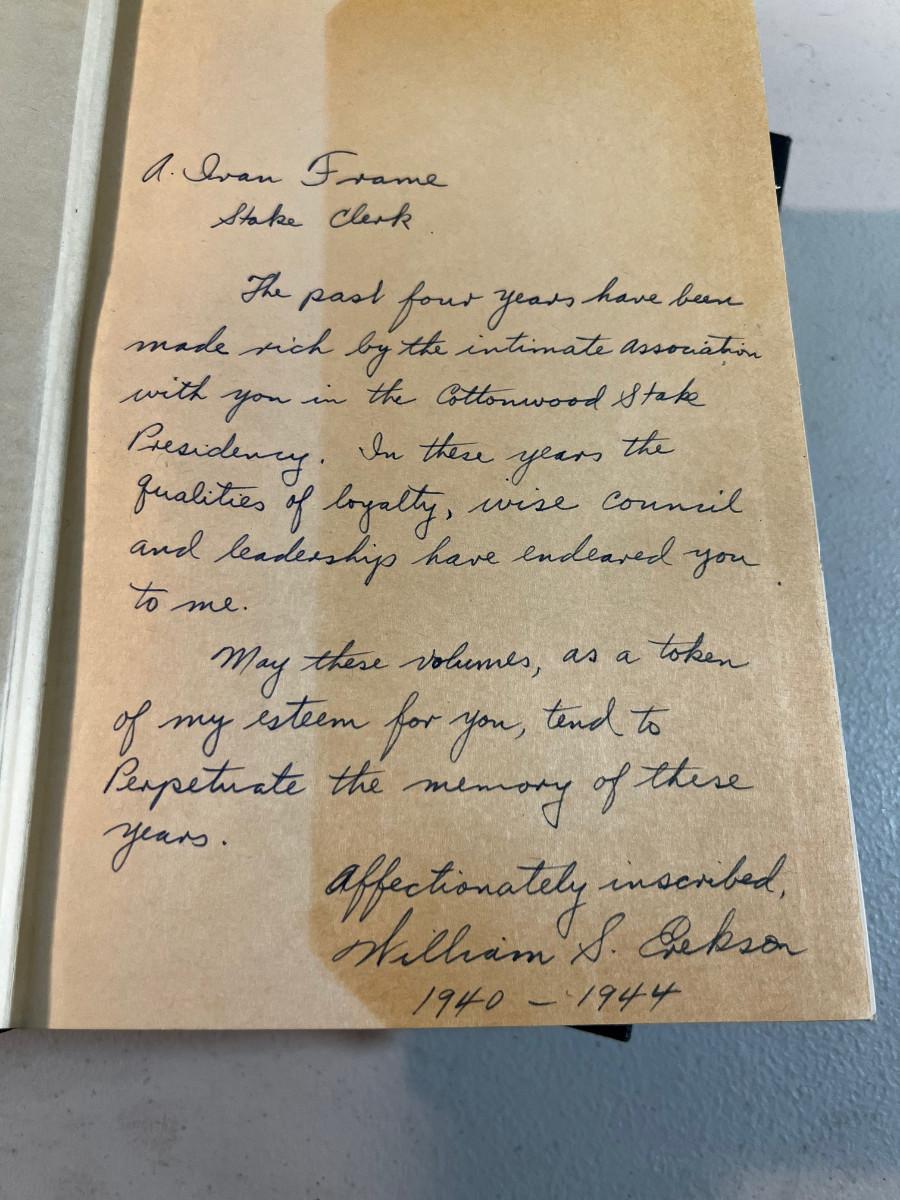 A. Ivan Frame
Stake Clerk
The past four years have been
made rich by the intimate association
with you in the Cottonwood Stake
Presidency. In these years the
qualities of loyalty, wise council
and leadership have endeared you
to me.
May these volumes, as a token
of my esteem for you, tend to
Perpetuate the memory of these
years.
Affectionately inscribed,
William S. Erekson
1940 – 1944